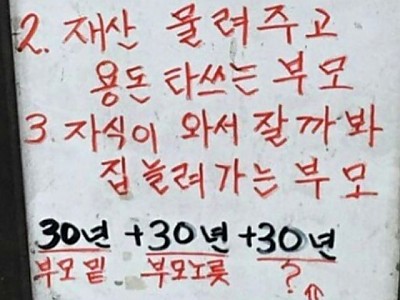 2. 재산 물려주고
용돈 타쓰는 부모
3. 자식이 와서 잘까봐
집 늘려가는 부모
30년 + 30년 + 30년
부모밑 부모노릇 ?